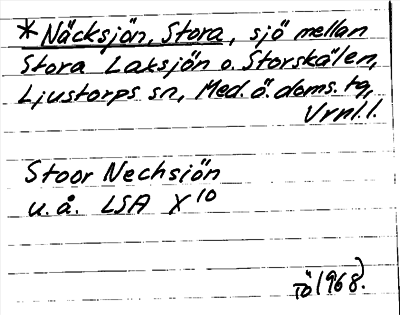 *Näcksjön, Stora, sjö mellan
Stora Laksjön o. Storskälen,
Ljustorps sn, Med. ö. doms. tg,
Vrnl.l.
Stoor Nechsiön
u.å. LSA X10
TÖ 1968.